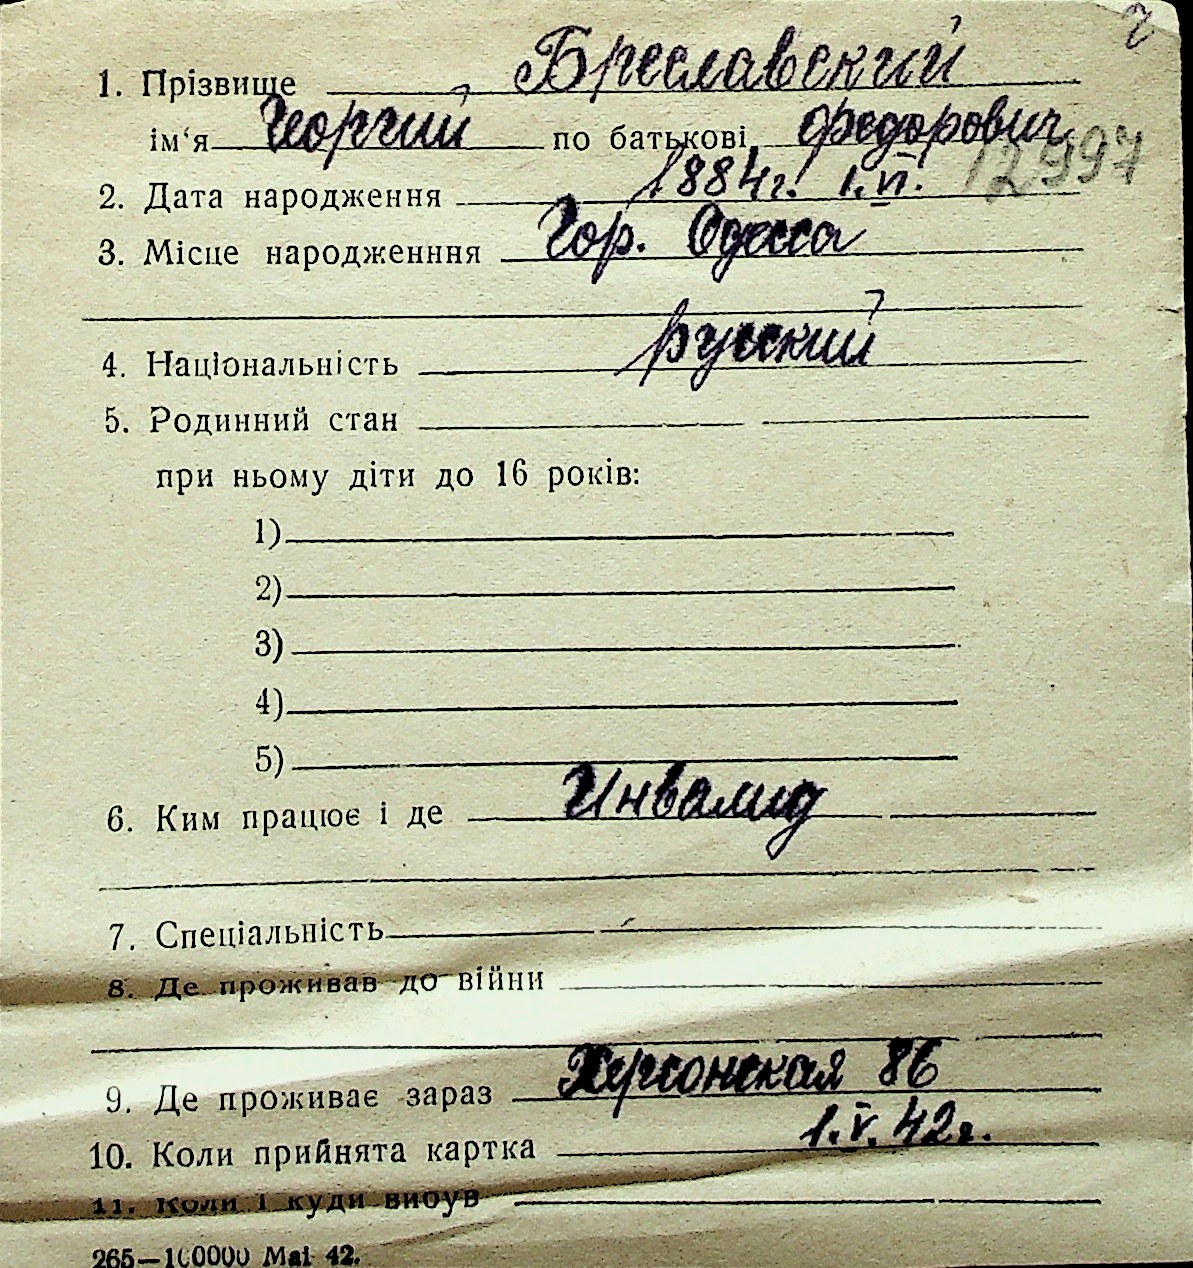 1. Прізвище Бреславский
ім‘я Георгий по батькові Федорович
12997
2. Дата народження 1884г. 1.VI.
3. Місце народженння Гор. Одесса
4. Національність русский
5. Родинний стан
при ньому діти до 16 років:
1)
2)
3)
4)
5)
6. Ким працює і де Инвалид
7. Спеціальність
8. Де проживав до війни
9. Де проживає зараз Херсонская 86
10. Коли прийнята картка 1.V.42г.
11. Коли і куди вибув
265—100000 Mai 42.